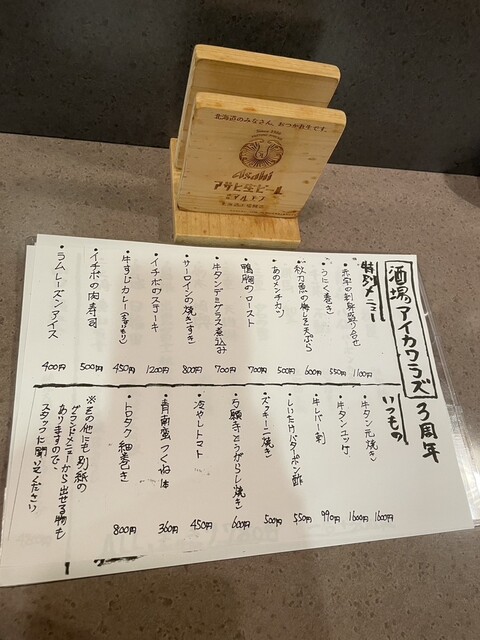 北海道のみなさん、おつかれさまです。
Asahi
アサヒ生ビール
マルエフ
酒場アイカワラズ 3周年
特別メニュー
・赤字の刺身盛り合せ 1100円
・うにく巻き 550円
・秋刀魚の梅しそ天ぷら 600円
・あのメンチカツ 500円
・鴨胸のロースト 700円
・牛タンデミグラス煮込み 700円
・サーロインの焼きすき 800円
・イチボのステーキ 1200円
・牛すじカレー 450円
・イチボの肉寿司 500円
・ラムレーズンアイス 400円
いつもの
・牛タン元焼き 1600円
・牛タンユッケ 1600円
・牛レバー刺 990円
・しいたけバタポン酢 550円
・ズッキーニ焼き 500円
・万願寺とうがらし焼き 600円
・冷やしトマト 450円
・青南蛮つくね1本 360円
・トロタク細巻き 800円
※その他にも別紙の
グランドメニューから出せる物も
ありますので、
スタッフに聞いてください